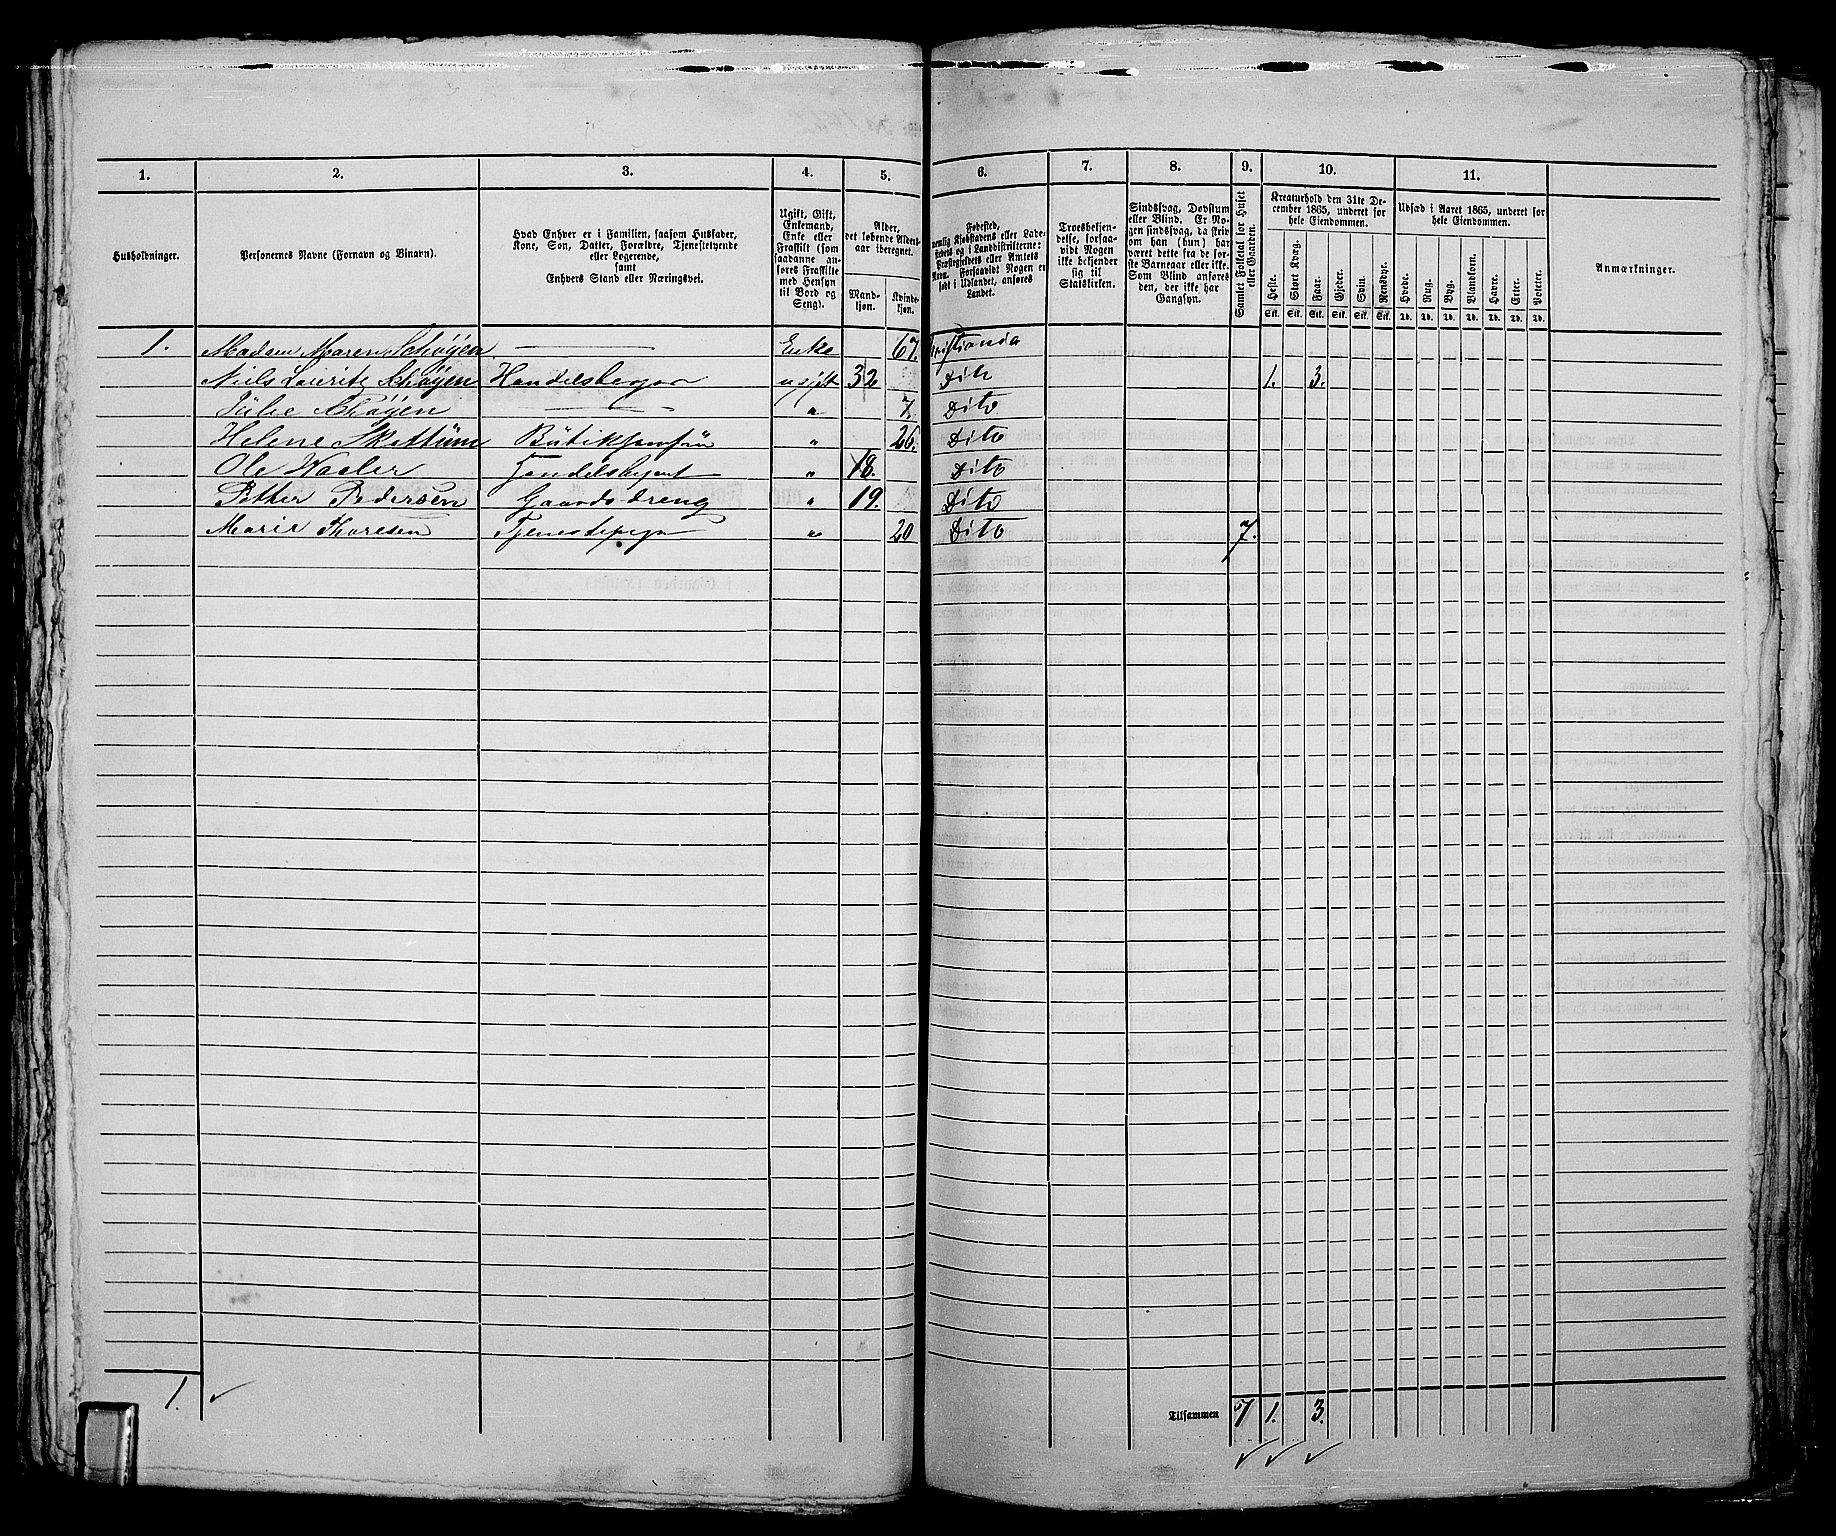 1. 2. 3. 4. 5. 6. 7. 8. 9. 10. 11.
Husholdninger.
Personernes Navne (Fornavn og Binavn).
Hvad Enhver er i Familien, saasom Husfader,
Kone, Søn, Datter, Forældre, Tjenestetyende
eller Logerende,
samt
Enhvers Stand eller Næringsvei.
Ugift, Gift,
Enkemand,
Enke eller
Fraskilt (som
saadanne an-
føres Fraskilte
med Hensyn
til Bord og
Seng).
Alder,
det løbende Alders-
aar iberegnet.
Mand-
kjøn.
Kvinde-
kjøn.
Fødested,
nemlig Kjøbstadens eller Lade-
stedets og i Landdistrikterne:
Præstegjeldets eller Amtets
Navn. Forsaavidt Nogen er
født i Udlandet, anføres
Landet.
Troesbekjen-
delse, forsaa-
vidt Nogen
ikke bekjender
sig til
Statskirken.
Sindssvag, Døvstum
eller Blind. Er No-
gen sindssvag, da skriv
om han (hun) har
været det fra de før-
ste Barneaar eller ikke.
Som Blind anføres
den, der ikke har
Gangsyn.
Samlet Folketal for Huset
eller Gaarden.
Kreaturhold den 31te De-
cember 1865, underet for
hele Eiendommen.
Heste. Stort Kvæg. Faar. Gjeder. Svin. Rensdyr.
Stk. Stk. Stk. Stk. Stk. Stk.
Udsæd i Aaret 1865, underet for
hele Eiendommen.
Hvede. Rug. Byg. Blandkorn. Havre. Erter. Poteter.
Td. Td. Td. Td. Td. Td. Td.
Anmærkninger.
1. Madam Maren Schøyen Enke 67. Kristiania
Niels Lauritz Schøyen Handelsborger ugift 32 Dito 1. 3.
Julie Schøyen " 7. Dito
Helene Skattüm Bütikjomfrü " 26. Dito
Ole Waaler Handelsbetjent " 18. Dito
Petter Pedersen Gaardsdreng " 19. Dito
Marie Thoresen Tjenestepige " 20 Dito 7.
1.
Tilsammen 7 1. 3.